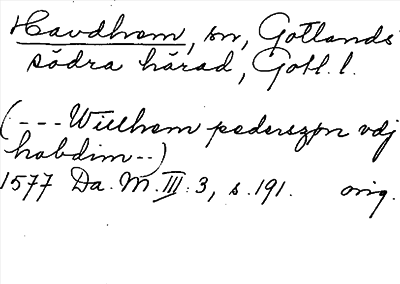 Havdhem, sn, Gotlands
södra härad, Gotl. l.
(--- Willhem pederszøn vdj
habdim --)
1577 Da. M. III: 3, s. 191. orig.